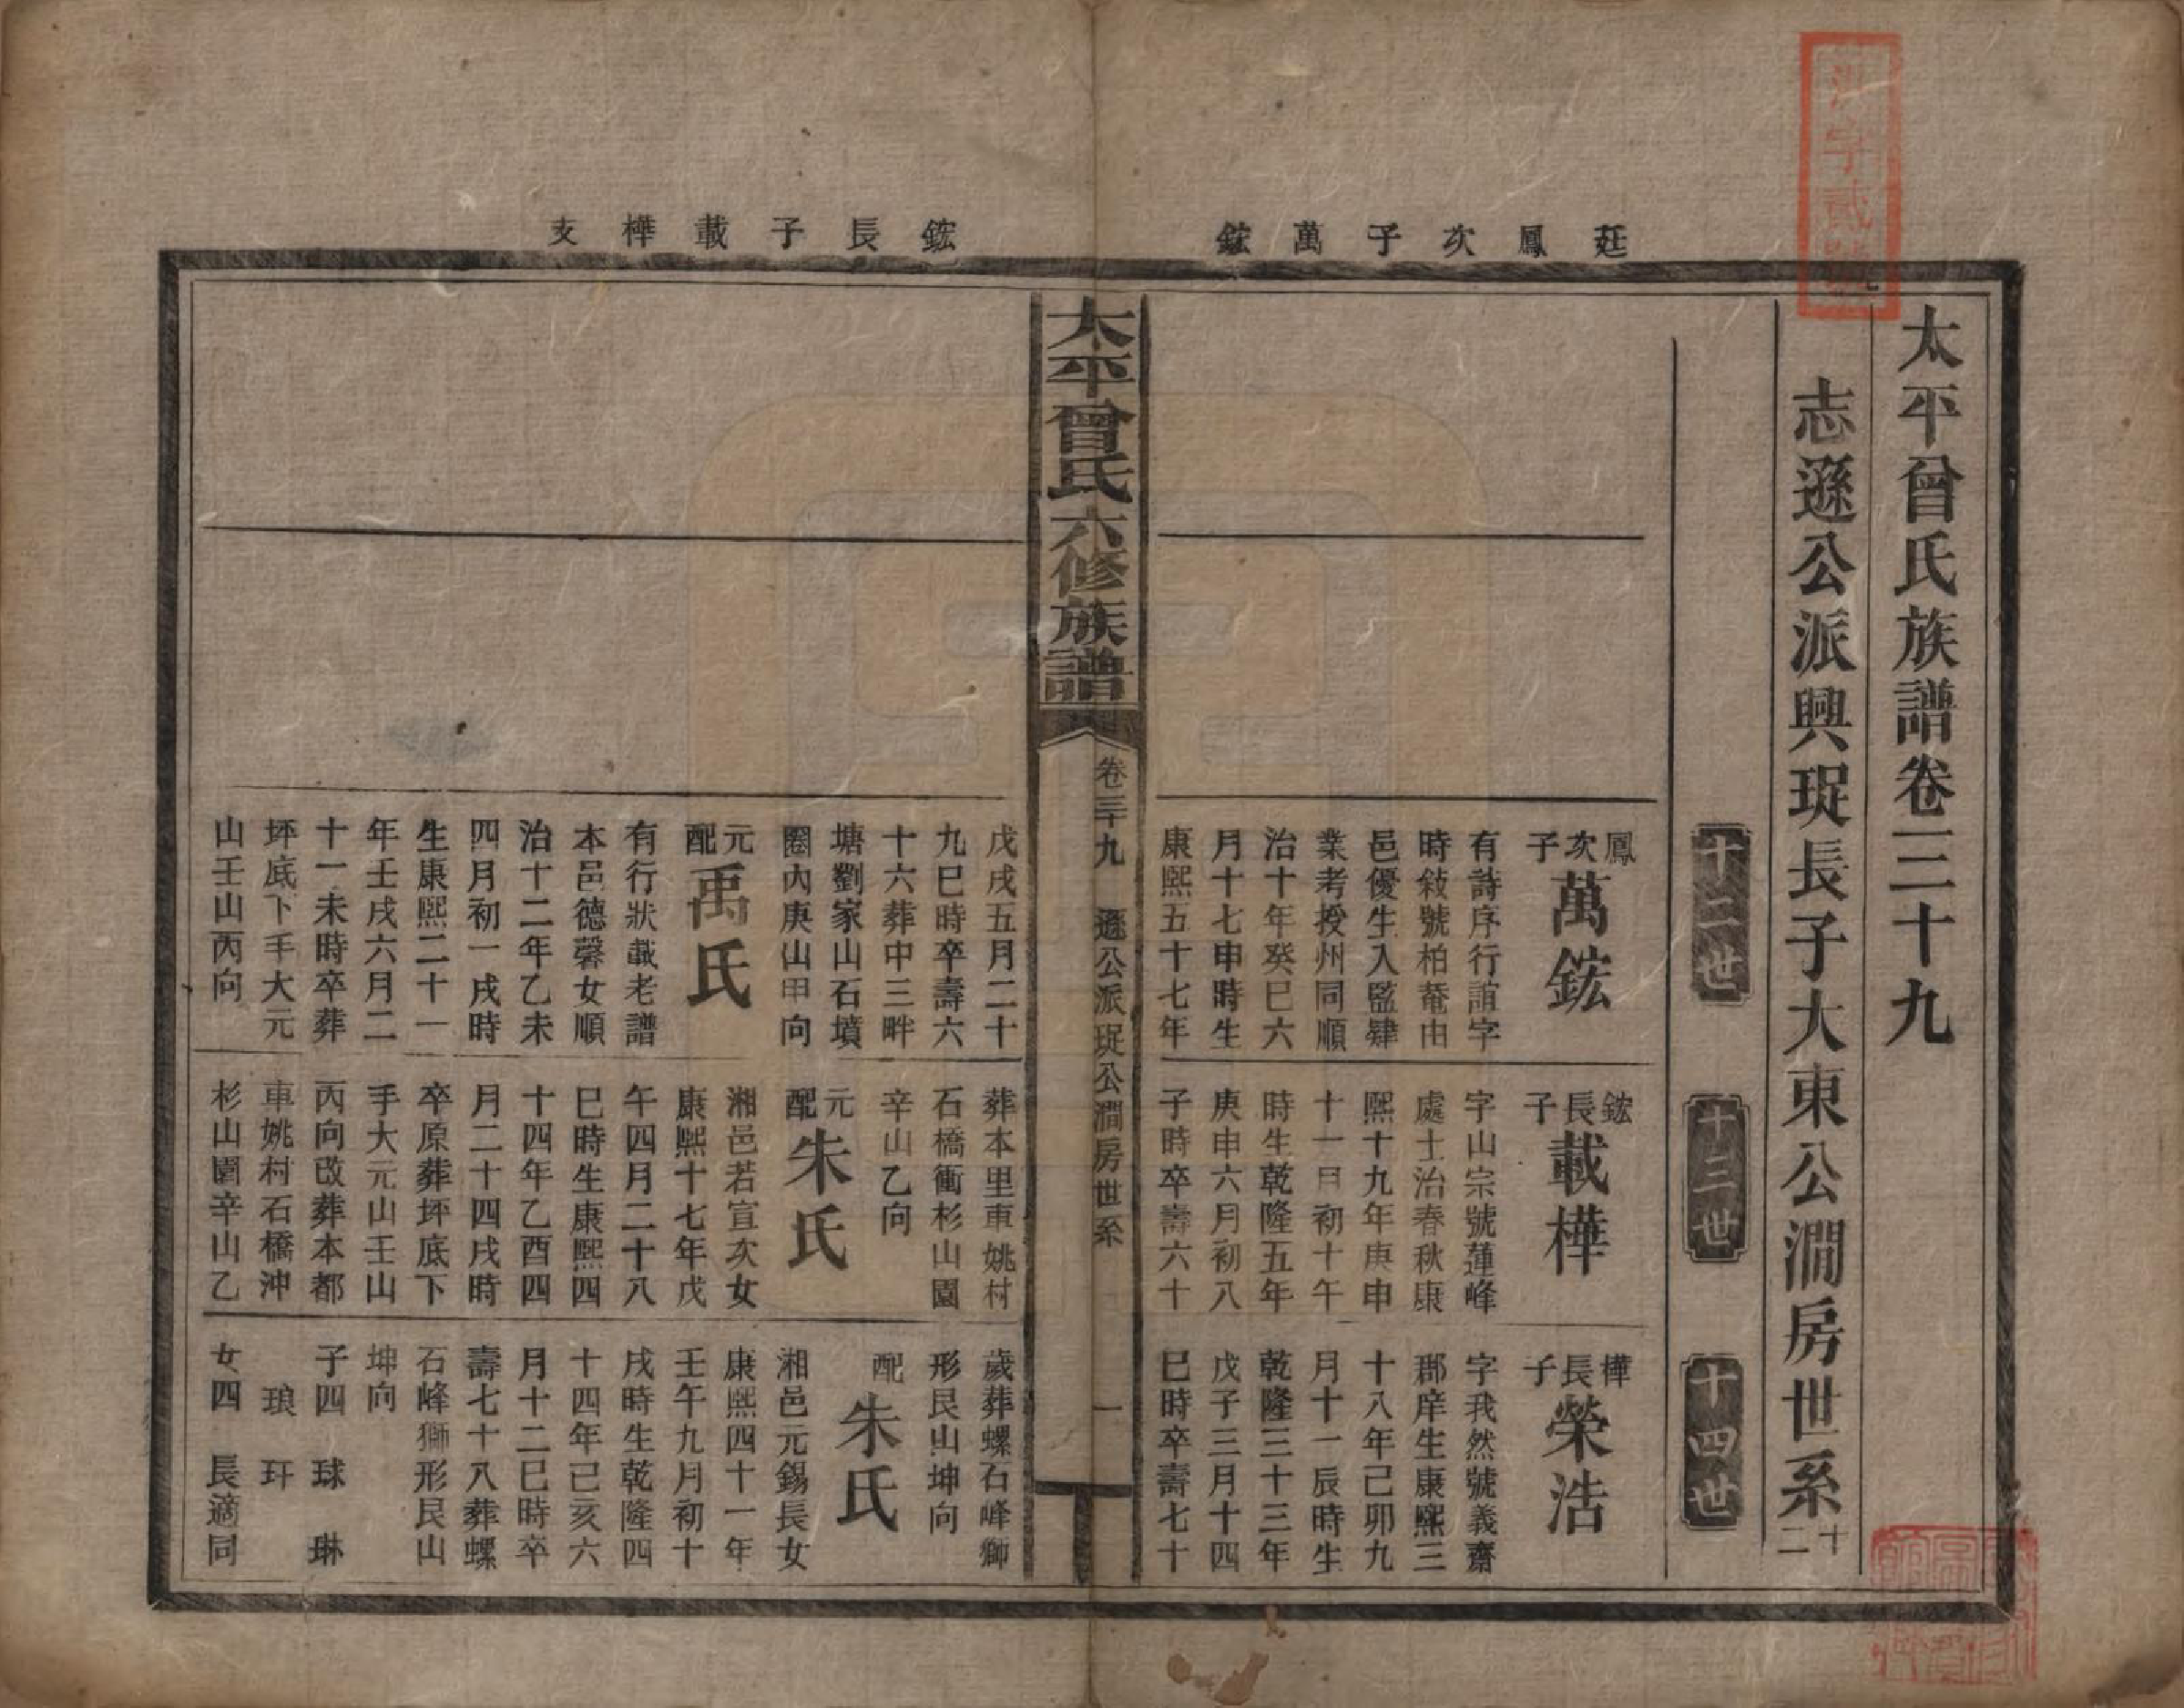 太平曾氏族譜卷三十九
志遜公派興珽長子大東公澗房世系十二
十二世
十三世
十四世
廷鳳次子萬鋐
鋐長子載樺支
鳳次子
萬鋐
有詩序行誼字
時敍號柏菴由
邑優生入監肄
業考授州同順
治十年癸巳六
月十七申時生
康熙五十七年
戊戌五月二十
九巳時卒壽六
十六葬中三畔
塘劉家山石墳
圈內庚山甲向
元配
禹氏
有行狀載老譜
本邑德馨女順
治十二年乙未
四月初一戌時
生康熙二十一
年壬戌六月二
十一未時卒葬
坪底下手大元
山壬山丙向
鋐長子
載樺
字山宗號蓮峰
處士治春秋康
熙十九年庚申
十一月初十午
時生乾隆五年
庚申六月初八
子時卒壽六十
葬本里車姚村
石橋衝杉山園
辛山乙向
元配
朱氏
湘邑若宣次女
康熙十七年戊
午四月二十八
巳時生康熙四
十四年乙酉四
月二十四戌時
卒原葬坪底下
手大元山壬山
丙向改葬本都
車姚村石橋沖
杉山園辛山乙
樺長子
榮浩
字我然號義齋
郡庠生康熙三
十八年己卯九
月十一辰時生
乾隆三十三年
戊子三月十四
巳時卒壽七十
歲葬螺石峰獅
形艮山坤向
配
朱氏
湘邑元錫長女
康熙四十一年
壬午九月初十
戌時生乾隆四
十四年己亥六
月十二巳時卒
壽七十八葬螺
石峰獅形艮山
坤向
子四 球 琳
琅 玕
女四 長適同
太平曾氏六修族譜
卷三十九 遜公派珽公澗房世系 一